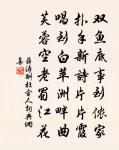 双鱼底事到侬家
扑手新詩片片霞
唱到白苹洲畔曲
芙蓉空老蜀江花
薛涛酬杜舍人